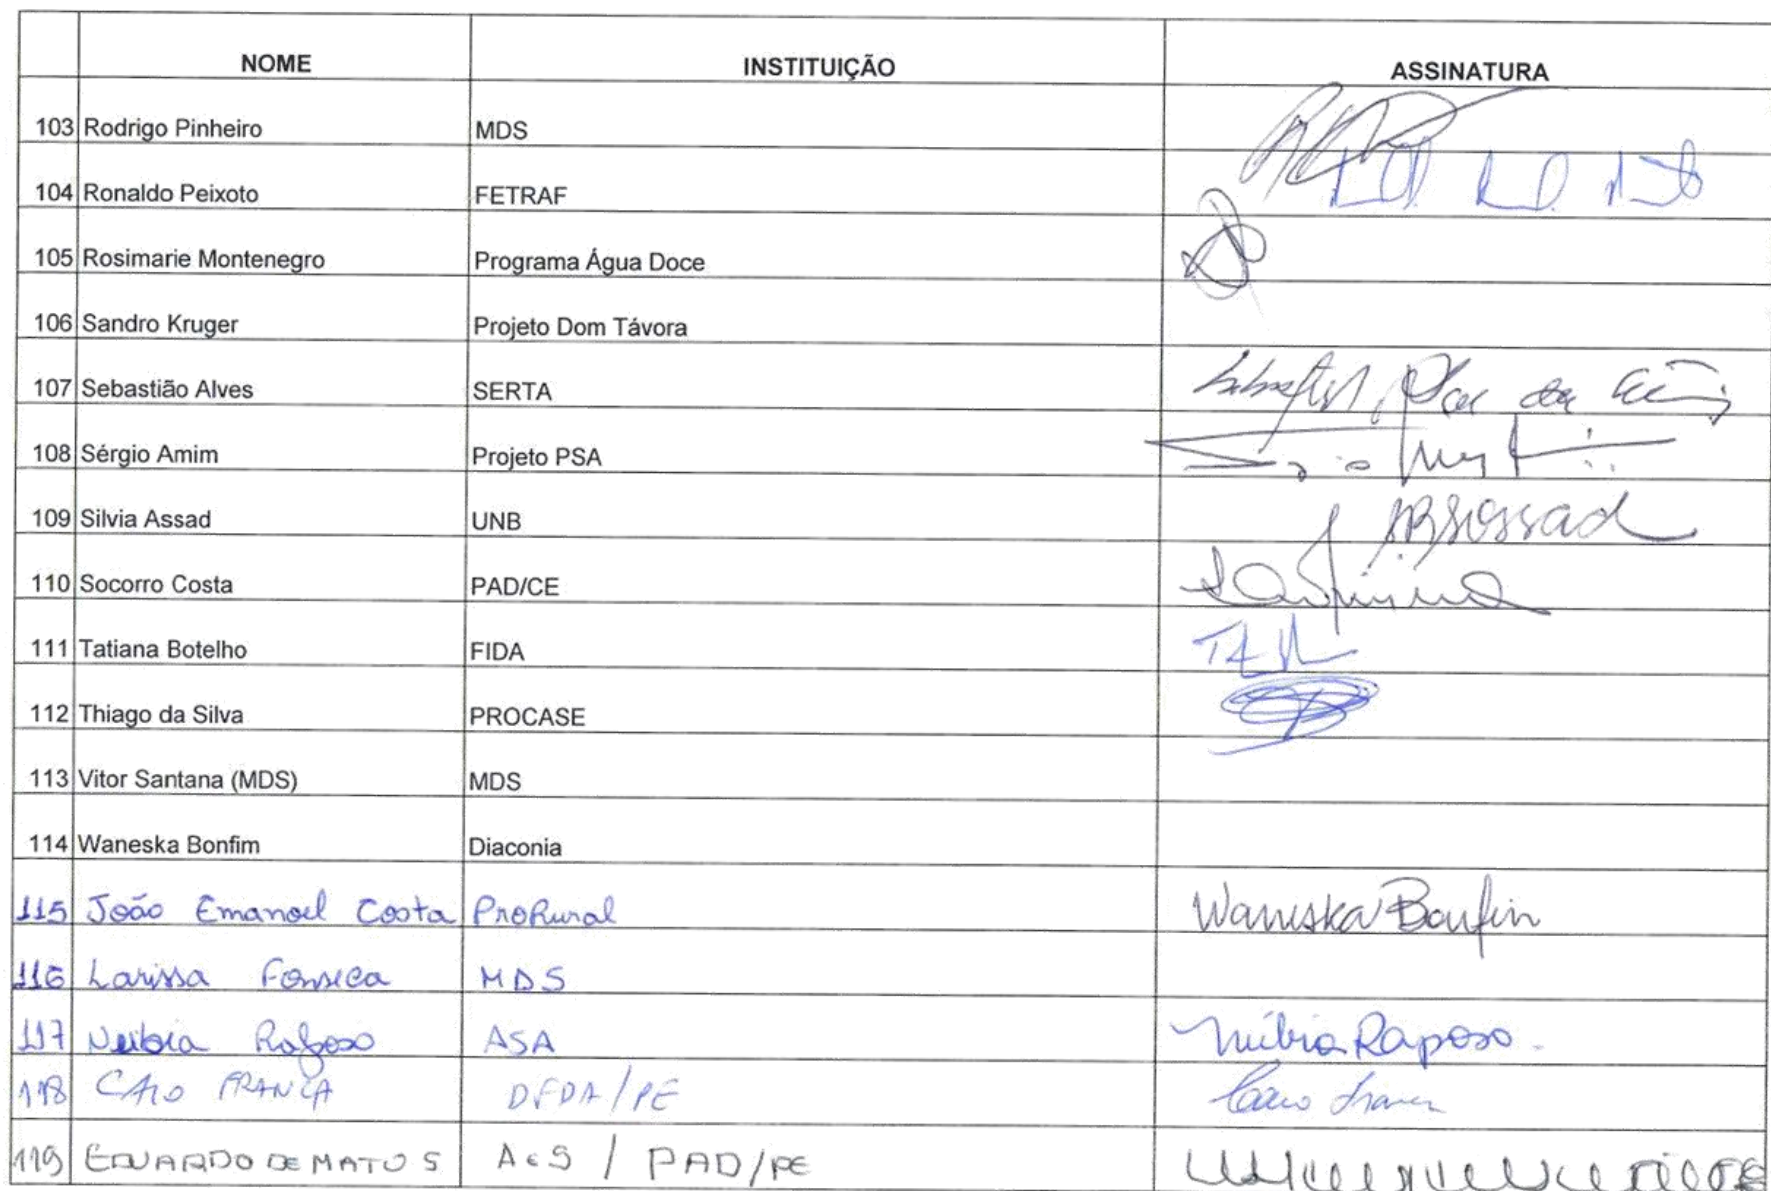 NOME INSTITUIÇÃO ASSINATURA
103 Rodrigo Pinheiro MDS
104 Ronaldo Peixoto FETRAF
105 Rosimarie Montenegro Programa Água Doce
106 Sandro Kruger Projeto Dom Távora
107 Sebastião Alves SERTA
108 Sérgio Amim Projeto PSA
109 Silvia Assad UNB
110 Socorro Costa PAD/CE
111 Tatiana Botelho FIDA
112 Thiago da Silva PROCASE
113 Vitor Santana (MDS) MDS
114 Waneska Bonfim Diaconia
115 João Emanoel Costa ProRural Waneska Bonfim
116 Larissa Fonseca MDS
117 Núbia Raposo ASA Núbia Raposo.
118 CAIO FRANÇA DFDA/PE Caio França
119 EDUARDO DE MATOS / PAD/PE